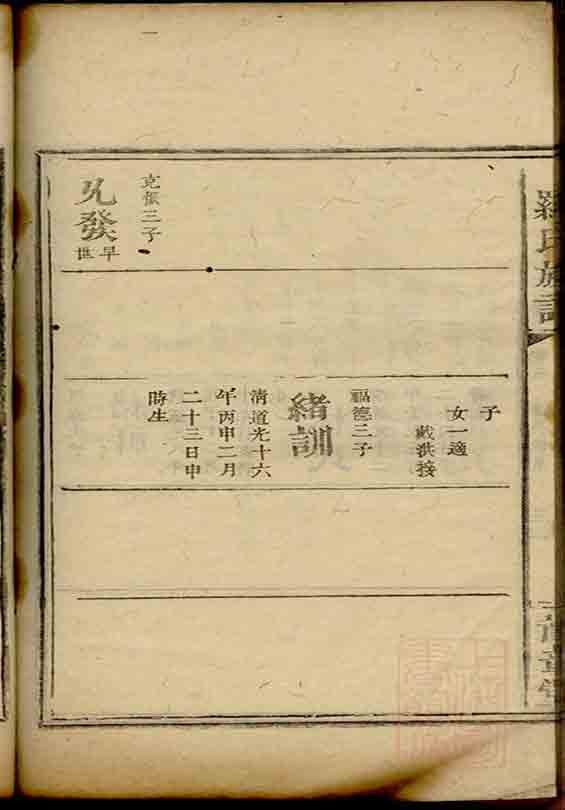 羅氏族譜
克振三子
允發
早世
子
女一適
戴洪接
福德三子
緒訓
清道光十六
年丙申二月
二十三日申
時生